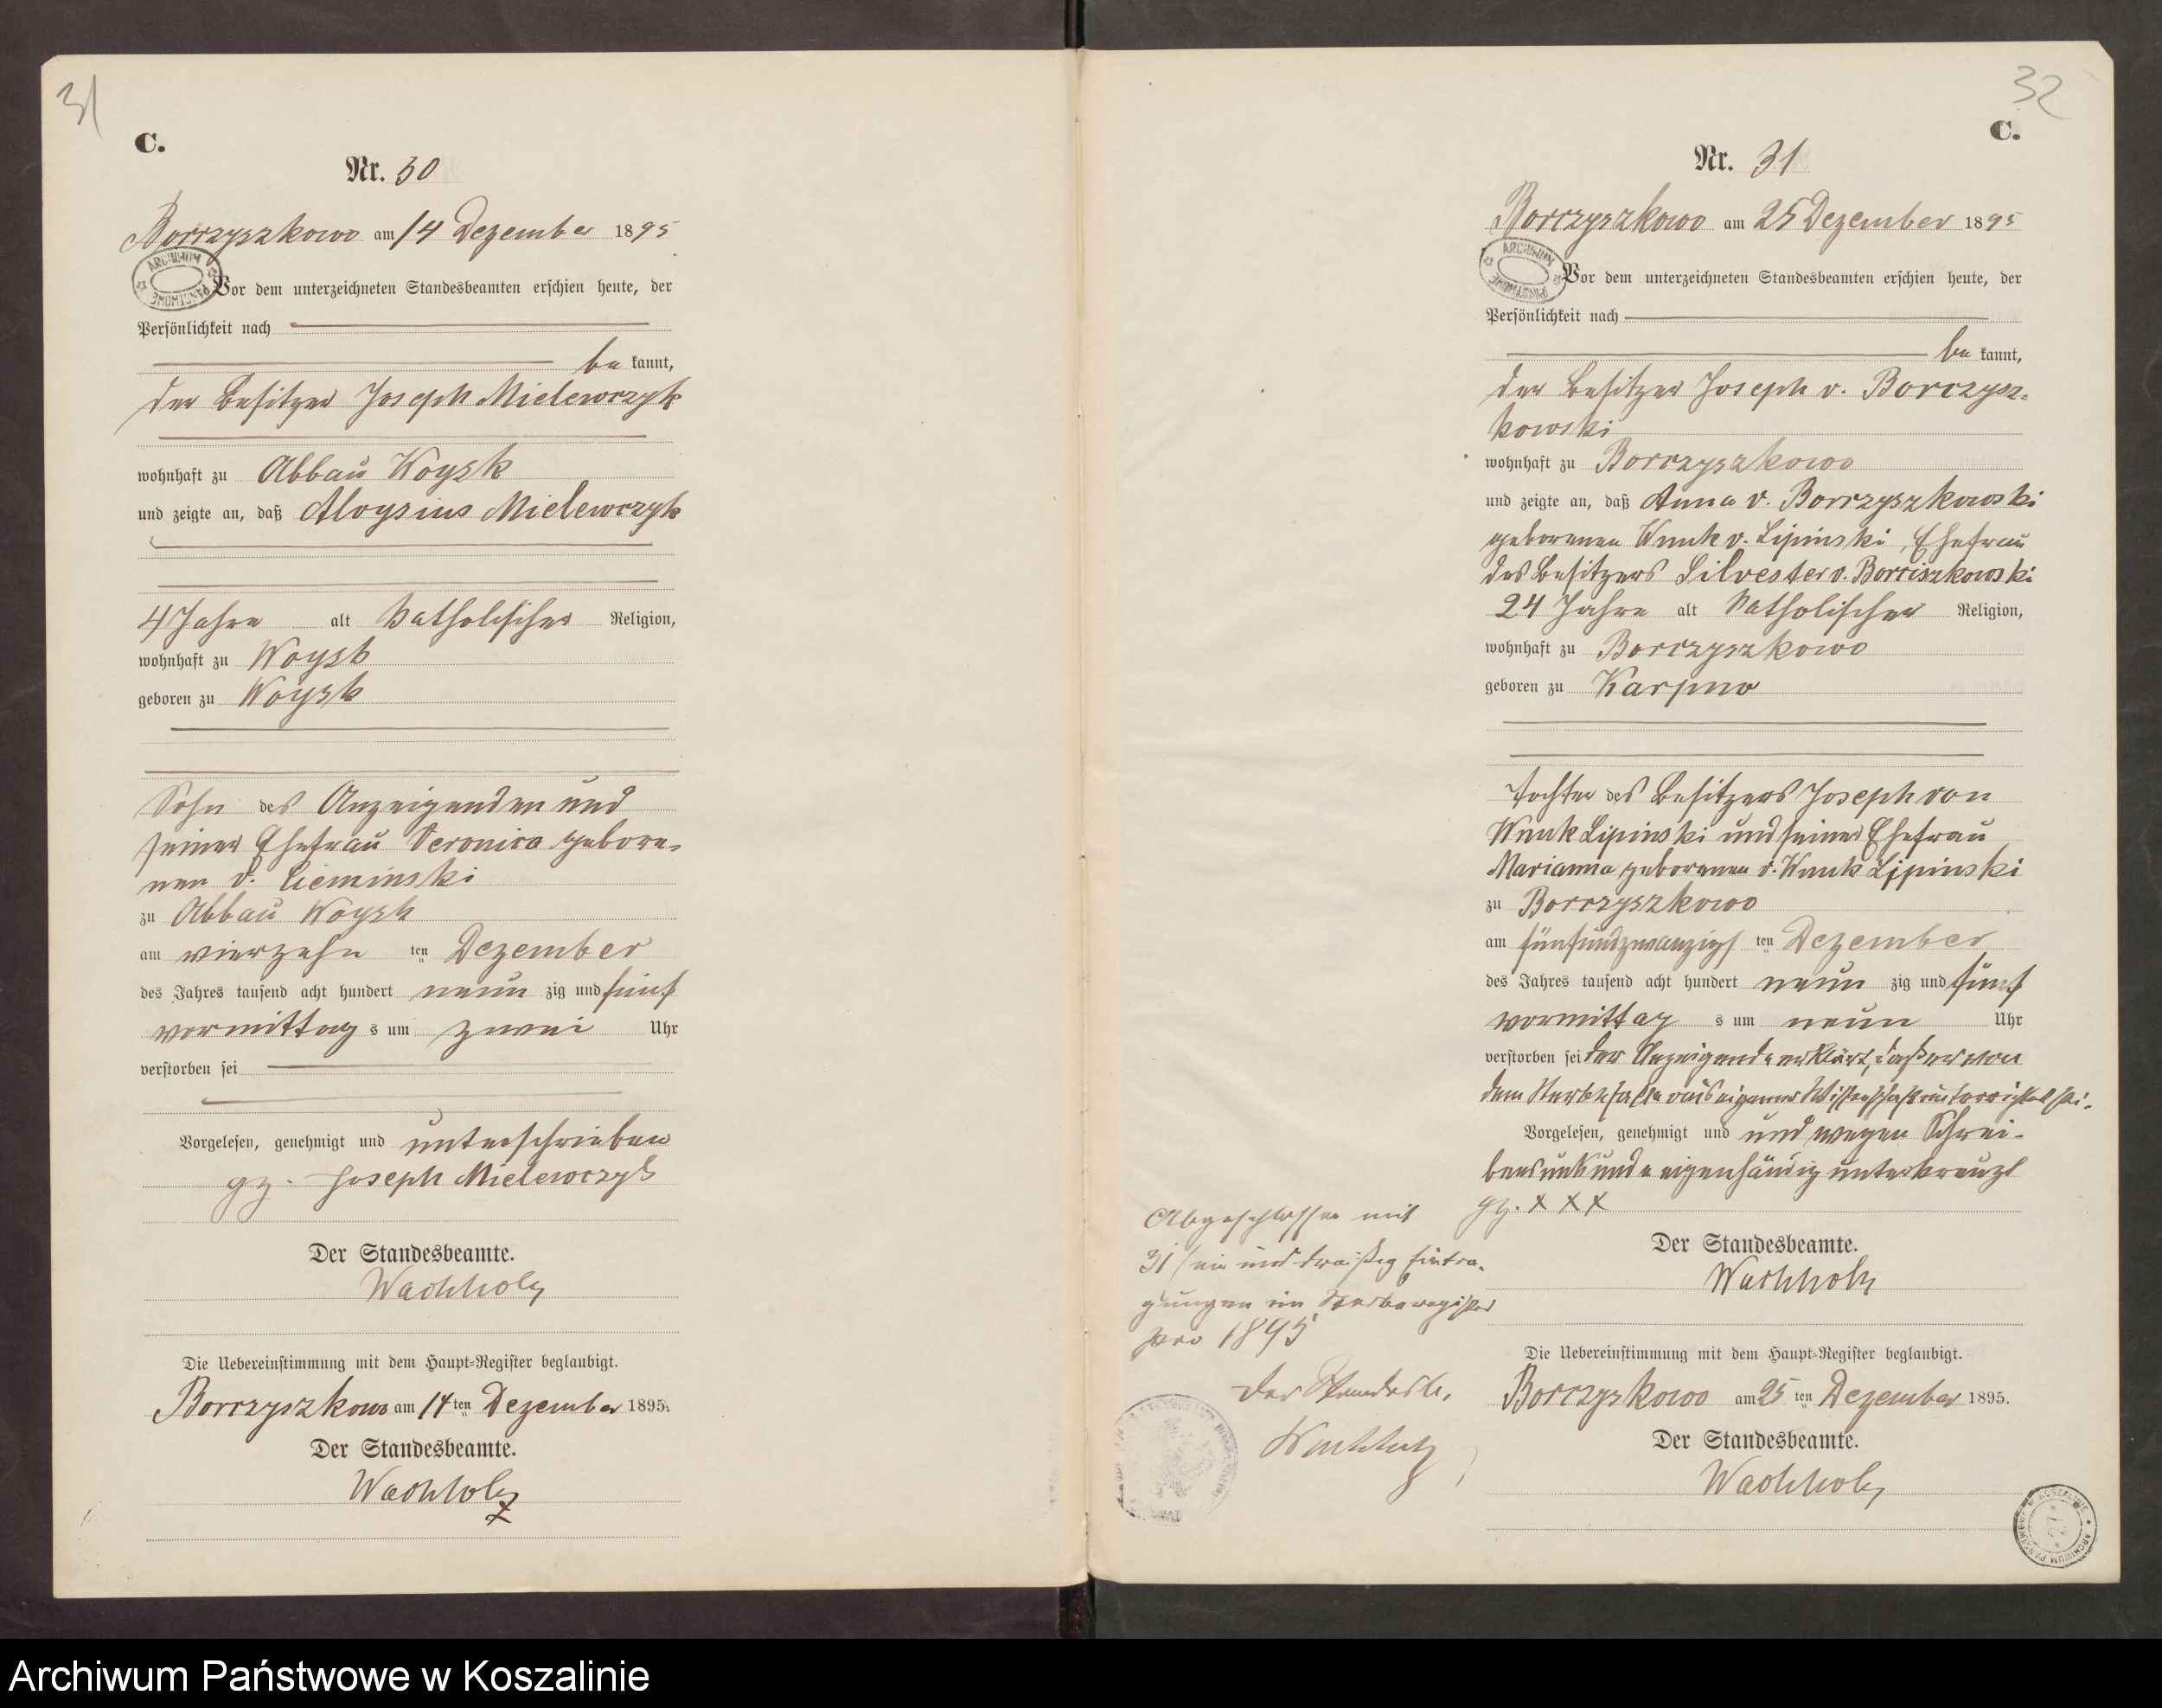 31
C.
Nr. 30
Borczyszkowo am 14 Dezember 1895
ARCHIWUM PAŃSTWOWE
Vor dem unterzeichneten Standesbeamten erschien heute, der
Persönlichkeit nach
be kannt,
der Besitzer Joseph Mielewczyk
wohnhaft zu Abbau Woysk
und zeigte an, daß Aloysius Mielewczyk
4 Jahre alt katholischer Religion,
wohnhaft zu Woysk
geboren zu Woysk
Sohn des Anzeigenden und
seiner Ehefrau Veronica gebore-
nen v. Cieminski
zu Abbau Woysk
am vierzehn ten Dezember
des Jahres tausend acht hundert neun zig und fünf
vormittag s um zwei Uhr
verstorben sei
Vorgelesen, genehmigt und unterschrieben
gz. Joseph Mielewczyk
Der Standesbeamte.
Wachholz
Die Uebereinstimmung mit dem Haupt-Register beglaubigt.
Borczyszkowo am 14 ten Dezember 1895.
Der Standesbeamte.
Wachholz
32
C.
Nr. 31
Borczyszkowo am 25 Dezember 1895
ARCHIWUM PAŃSTWOWE
Vor dem unterzeichneten Standesbeamten erschien heute, der
Persönlichkeit nach
be kannt,
der Besitzer Joseph v. Borczysz-
kowski
wohnhaft zu Borczyszkowo
und zeigte an, daß Anna v. Borczyszkowski
geborenen Wnuk v. Lipinski, Ehefrau
des Besitzers Silvester v. Borciszkowski
24 Jahre alt katholischer Religion,
wohnhaft zu Borczyszkowo
geboren zu Karpno
Tochter des Besitzers Joseph von
Wnuk Lipinski und seiner Ehefrau
Marianna geborenen v. Wnuk Lipinski
zu Borczyszkowo
am fünfundzwanzigs ten Dezember
des Jahres tausend acht hundert neun zig und fünf
vormittag s um neun Uhr
verstorben sei der Anzeigende erklärt, daß er von
dem Sterbefalle aus eigener Wissenschaft unterrichtet sei.
Vorgelesen, genehmigt und und wegen Schrei-
bensunkunde eigenhändig unterkreuzt
gz. x x x
Der Standesbeamte.
Wachholz
Die Uebereinstimmung mit dem Haupt-Register beglaubigt.
Borczyskowo am 25 ten Dezember 1895.
Der Standesbeamte.
Wachholz
Abgeschlossen mit
31 (ein und dreißig Eintra-
gungen im Sterberegister
pro 1895
Der Standesb.
Wachholz
ARCHIWUM PAŃSTWOWE W KOSZALINIE
27
Archiwum Państwowe w Koszalinie